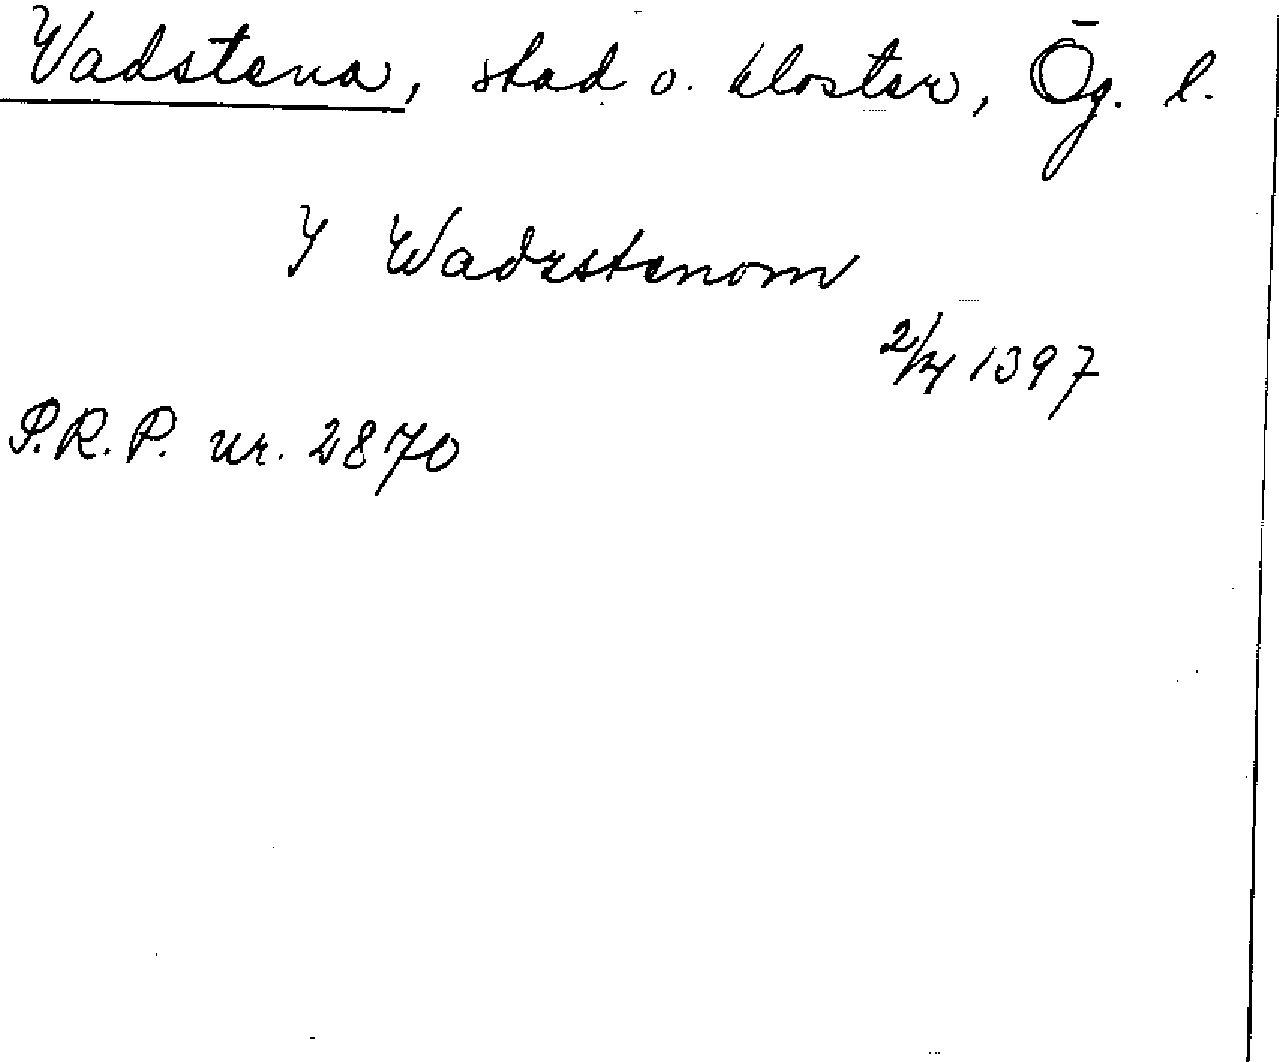 Vadstena, stad o. kloster, Ög. l.
Y Wadzstenom
2/4 1397
P.R.P. nr. 2870